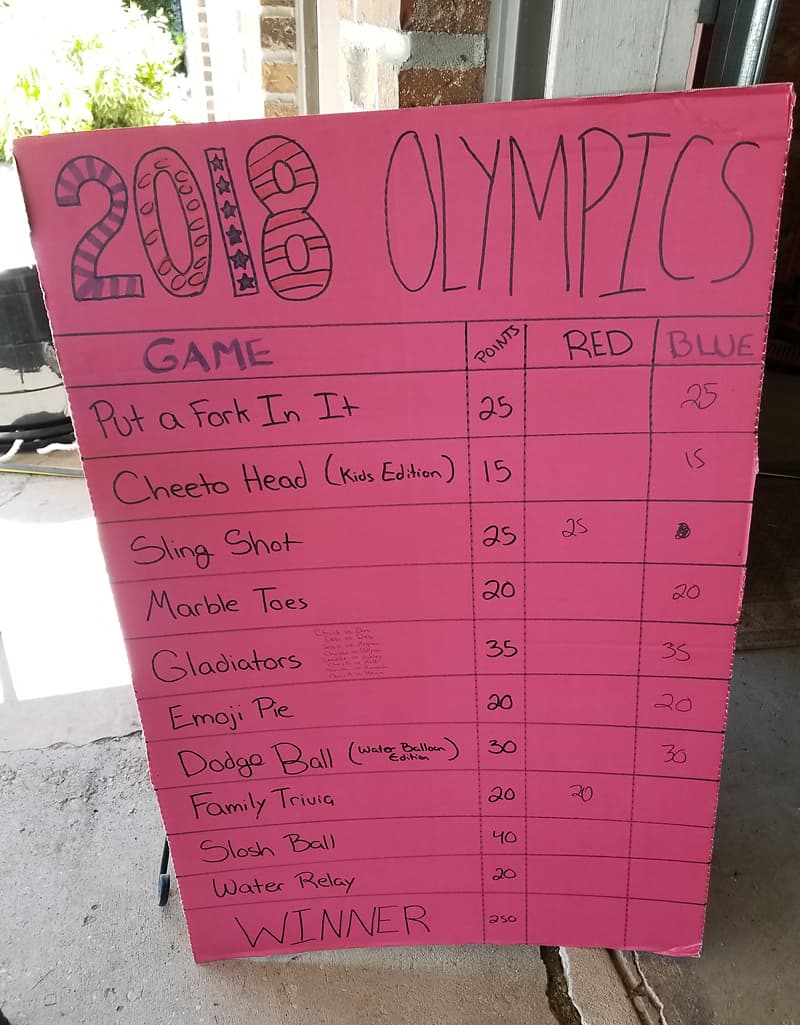 2018 OLYMPICS
GAME POINTS RED BLUE
Put a Fork In It 25 25
Cheeto Head (Kids Edition) 15 15
Sling Shot 25 25
Marble Toes 20 20
Gladiators 35 35
Emoji Pie 20 20
Dodge Ball (Water Balloon Edition) 30 30
Family Trivia 20 20
Slosh Ball 40
Water Relay 20
WINNER 250